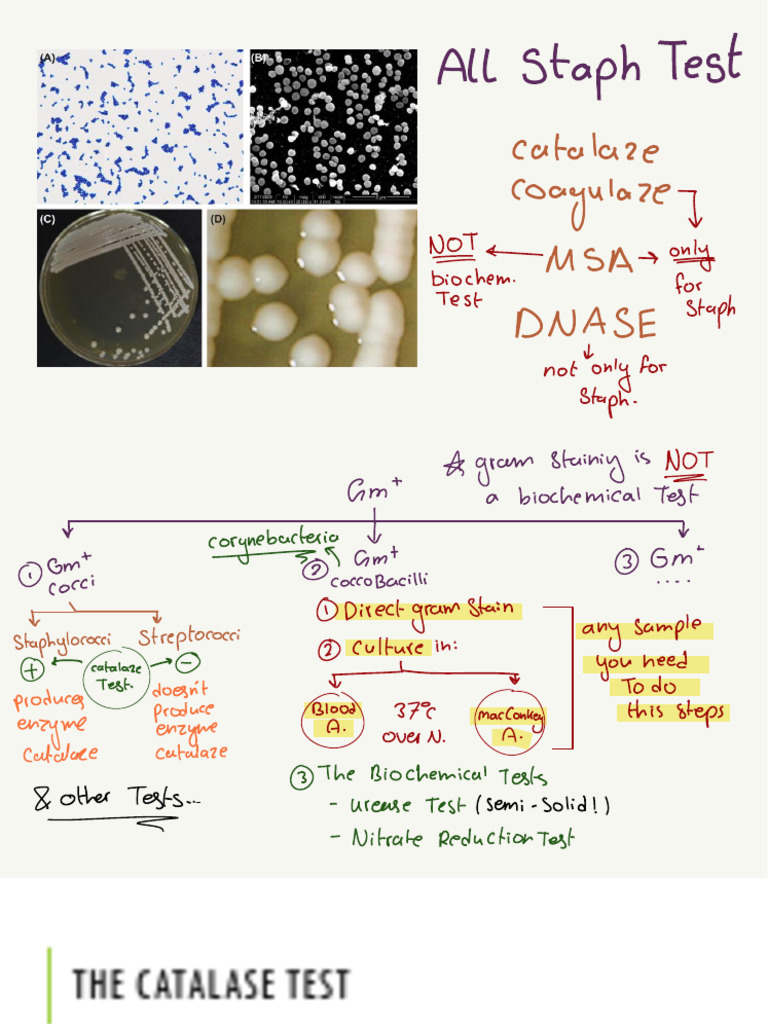 (A)
(B)
(C)
(D)
All Staph Test
catalaze
coagulaze
NOT
biochem.
Test
MSA
only
for
Staph
DNASE
not only for
Staph.
☆ gram staining is NOT
a biochemical Test
Gm+
① Gm+
cocci
corynebacteria
② Gm+
cocco Bacilli
③ Gm+
....
Staphylococci
Streptococci
+
catalaze
Test.
-
produces
enzyme
Catalaze
doesn't
Produce
enzyme
catalaze
& other Tests...
① Direct gram Stain
② Culture in:
Blood
A.
37°c
over N.
macConkey
A.
any sample
you need
To do
this steps
③ The Biochemical Tests
- urease Test (semi-solid!)
- Nitrate Reduction Test
THE CATALASE TEST